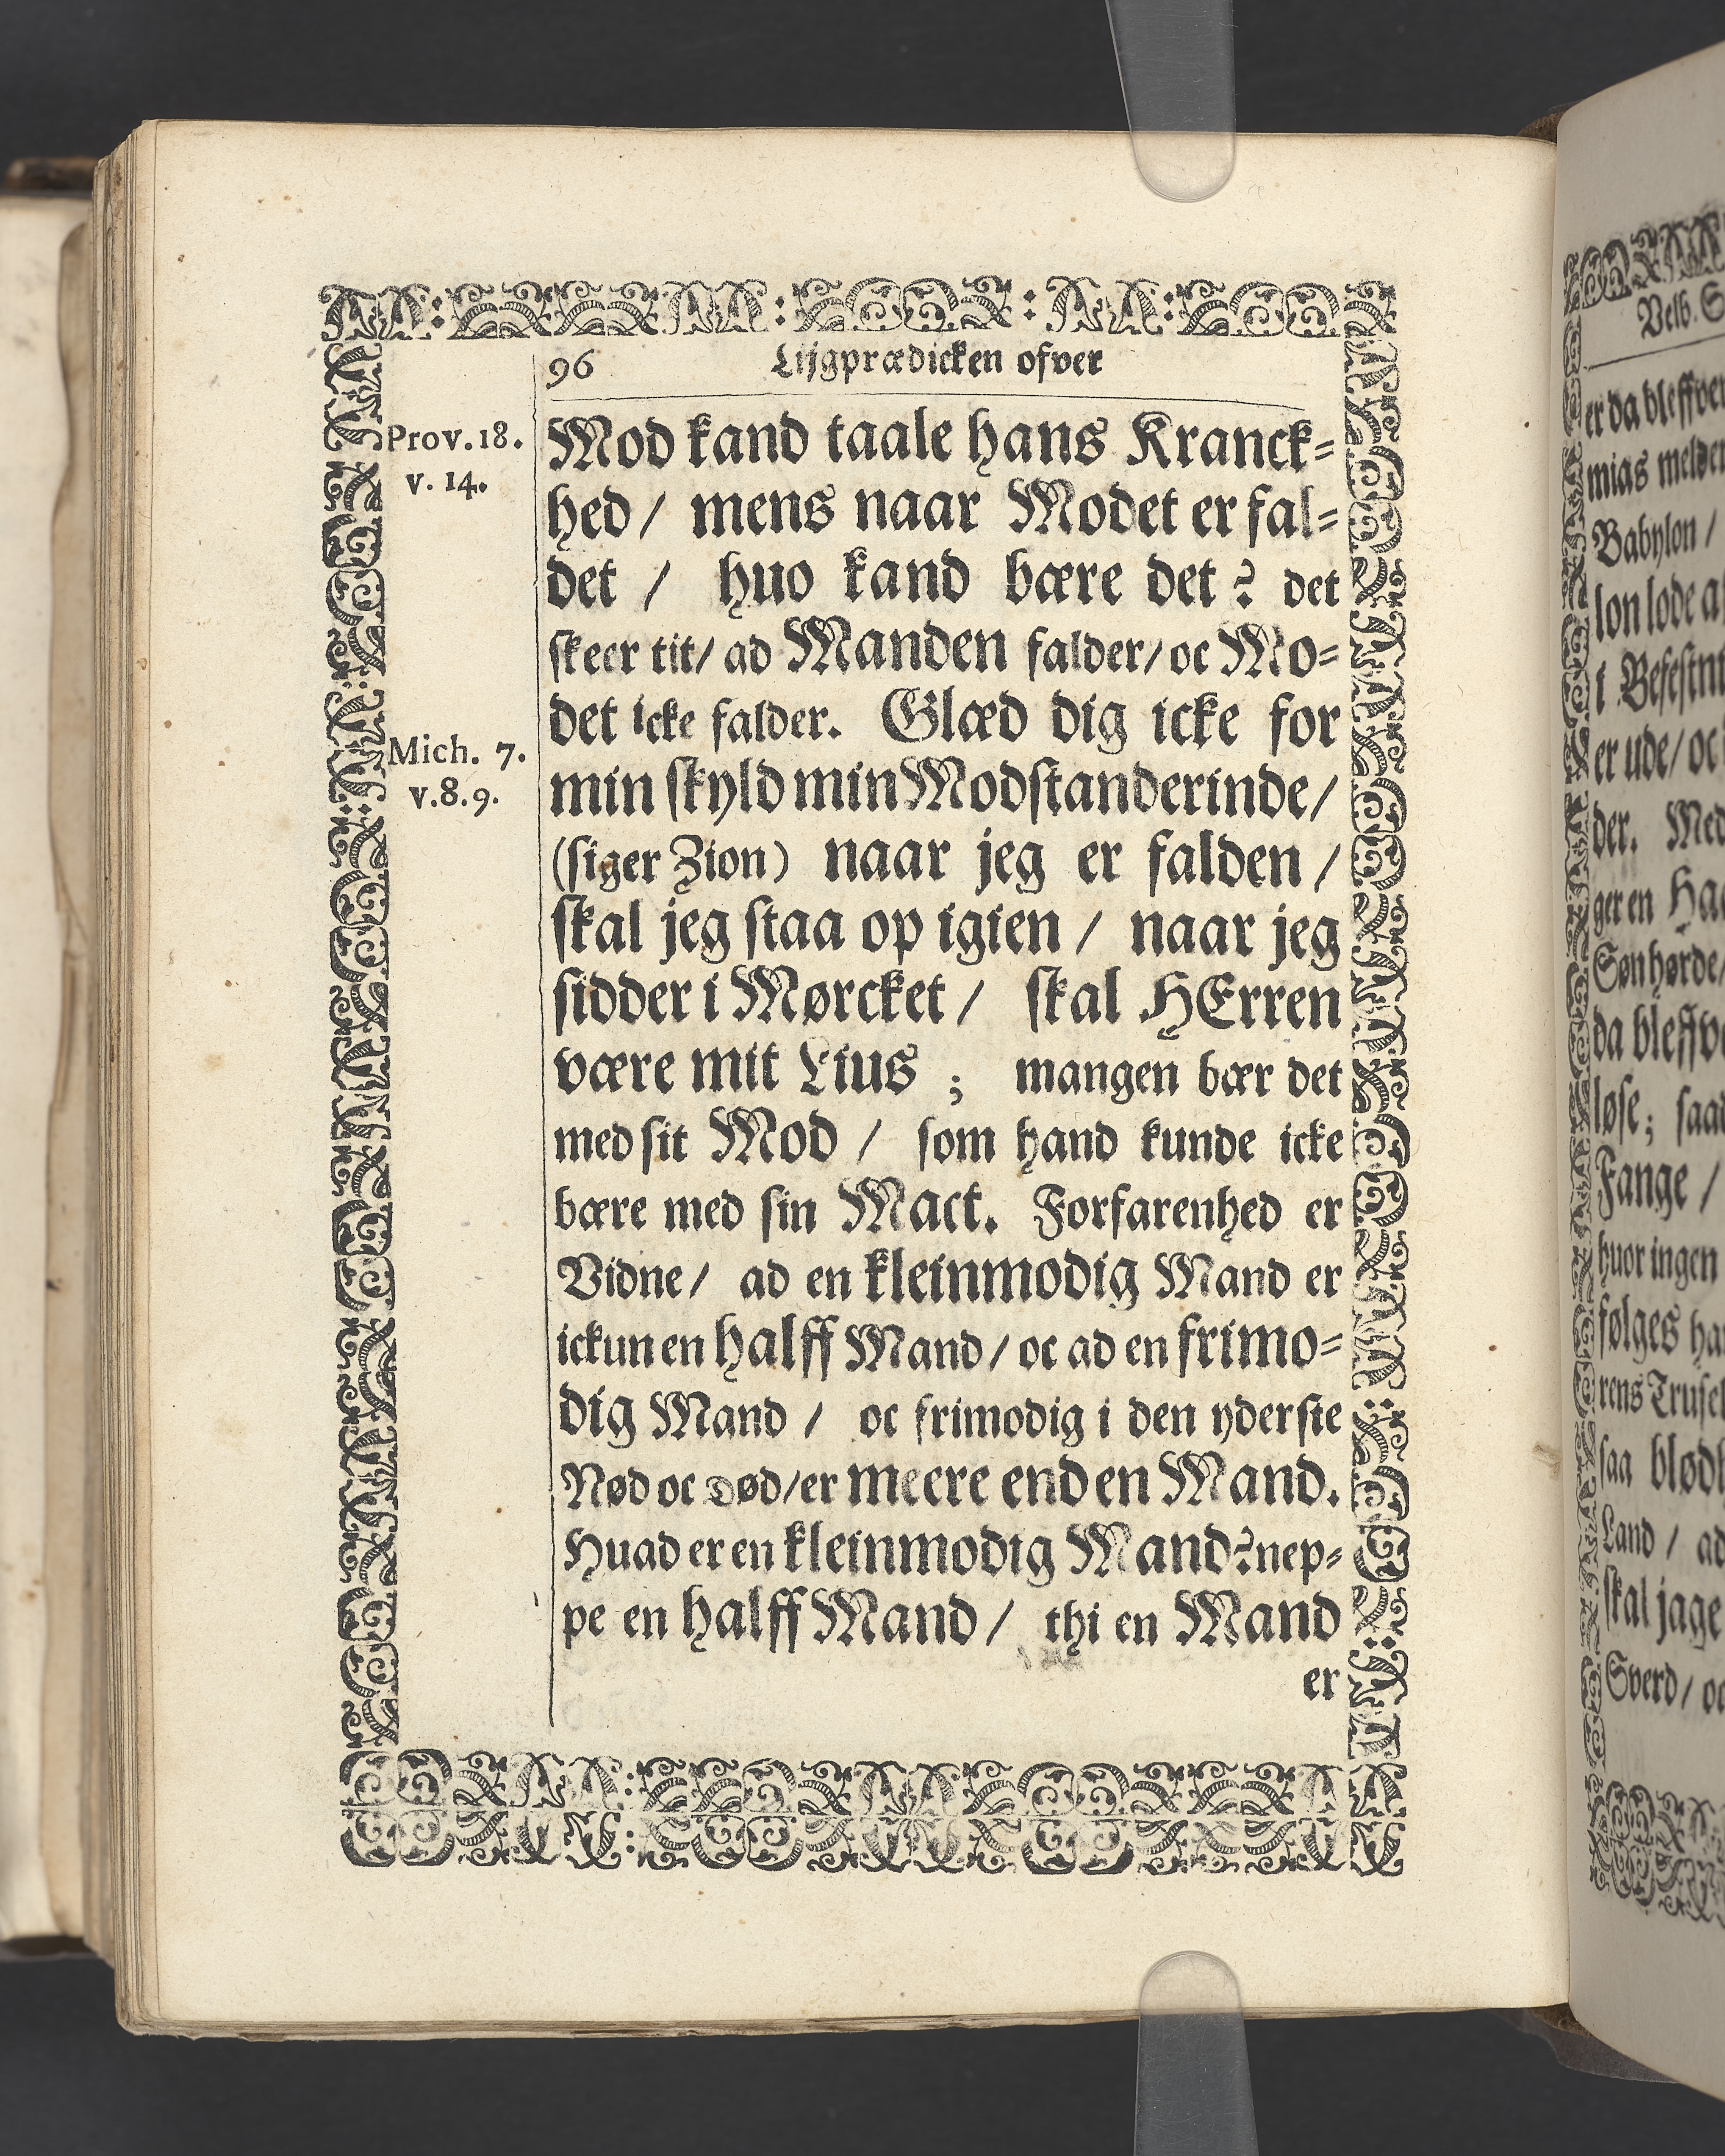 96 Lijgprædicken ofver
Prov. 18.
v. 14.
Mich. 7.
v. 8. 9.
Mod kand taale hans Kranck-
hed / mens naar Modet er fal-
det / huo kand bære det? det
skeer tit / ad Manden falder / oc Mo-
det icke falder. Glæd dig icke for
min skyld min Modstanderinde /
(siger Zion) naar jeg er falden /
skal jeg staa op igien / naar jeg
sidder i Mørcket / skal HErren
være mit Lius ; mangen bær det
med sit Mod / som hand kunde icke
bære med sin Mact. Forfarenhed er
Vidne / ad en kleinmodig Mand er
ickun en halff Mand / oc ad en frimo-
dig Mand / oc frimodig i den yderste
Nød oc Død / er meere end en Mand.
Huad er en kleinmodig Mand? nep-
pe en halff Mand / thi en Mand
er
Velb.
er da bleffve
mias melde
Babylon /
lon lode
i Befestn
er ude / oc
der. Med
ger en
Søn hørde /
da
løse ; saa
Fange /
huor ingen
følges
rens
saa
Land / ad
skal jage
Sverd / oc